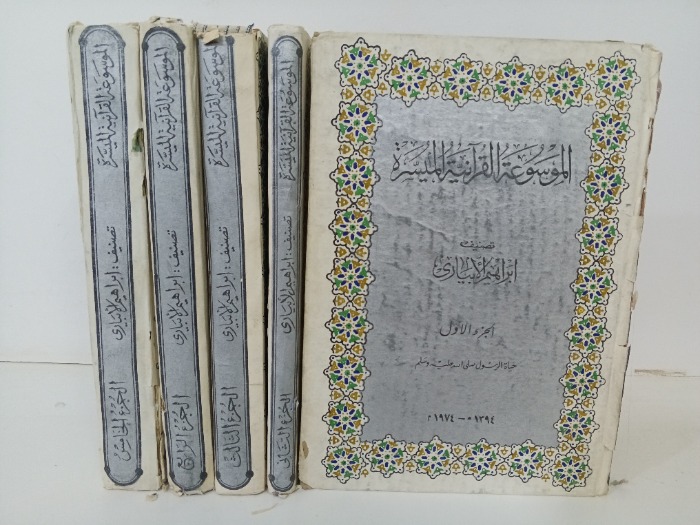 الموسوعة القرآنية الميسرة
تصنيف
إبراهيم الإبياري
الجزء الأول
حياة الرسول صلى الله عليه وسلم
١٣٩٤ هـ - ١٩٧٤ م
الموسوعة القرآنية الميسرة
تصنيف : إبراهيم الإبياري
الجزء الثاني
الموسوعة القرآنية الميسرة
تصنيف : إبراهيم الإبياري
الجزء الثالث
الموسوعة القرآنية الميسرة
تصنيف : إبراهيم الإبياري
الجزء الرابع
الموسوعة القرآنية الميسرة
تصنيف : إبراهيم الإبياري
الجزء الخامس